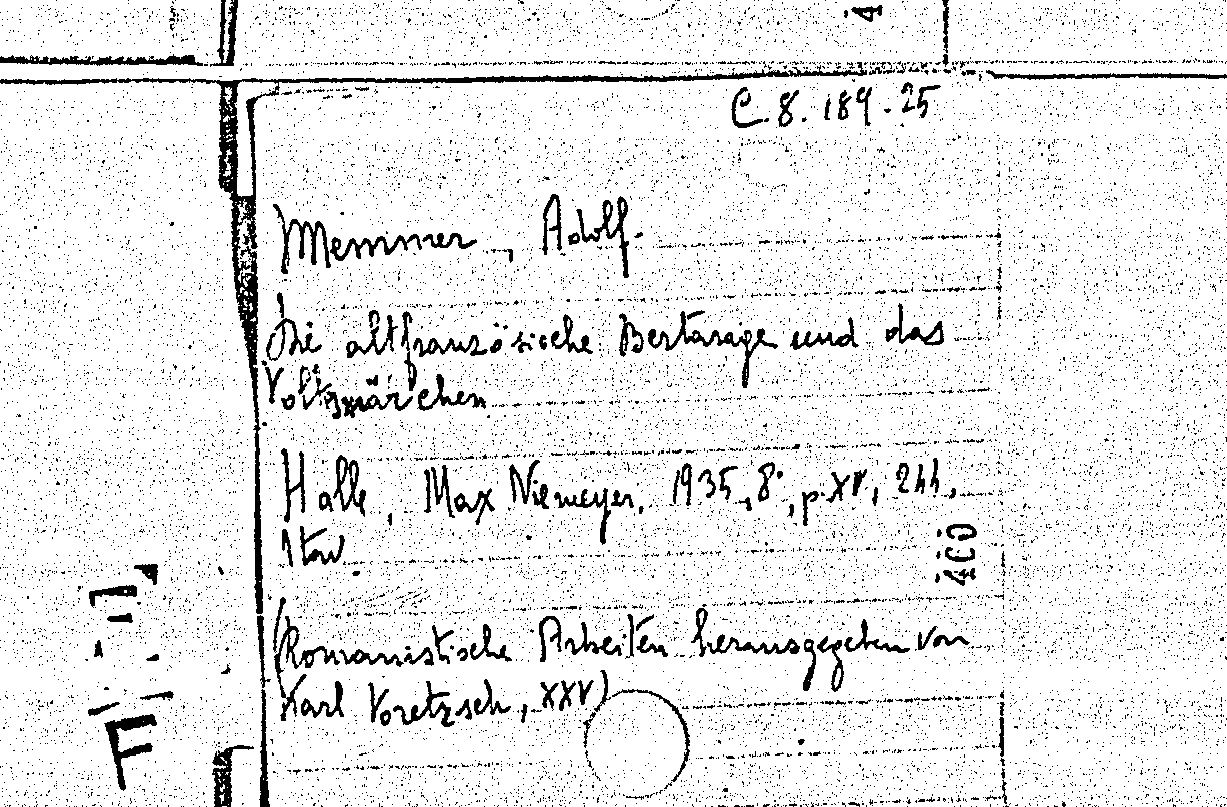 4
C.8.189.25
Memmer, Adolf.
Die altfranzösische Bertasage und das
Volksmärchen
Halle, Max Niemeyer, 1935, 8°, p. XV, 244,
1 tav.
400
(Romanistische Arbeiten herausgegeben von
Karl Voretzsch, XXV)
F